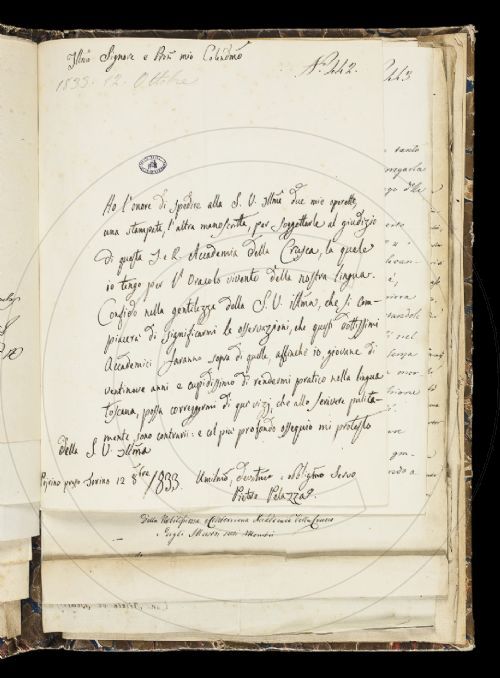 Illmo Signore e Pron mio Colendmo
1833. 12. Ottobre
No. 442.
443
Ho l'onore di spedire alla S. V. Illma due mie operette,
una stampata, l'altra manoscritta, per soggettarle al giudizio
di questa I. e R. Accademia della Crusca, la quale
io tengo per l'Oracolo vivente della nostra lingua.
Confido nella gentilezza della S. V. Illma, che si com-
piacerà di significarmi le osservazioni, che questi dottissimi
Accademici faranno sopra di quelle, affinchè io, giovane di
ventinove anni e cupidissimo di rendermi pratico nella lingua
toscana, possa correggermi di que' vizj, che allo scrivere pulita-
mente sono contrarii: e col più profondo ossequio mi protesto
Della S. V. Illma
presso Torino 12 8bre 1833
Umilmo, Devotmo e Obbligmo Servo
Pietro Pelazza.
Della Nobilissima Accademia della Crusca